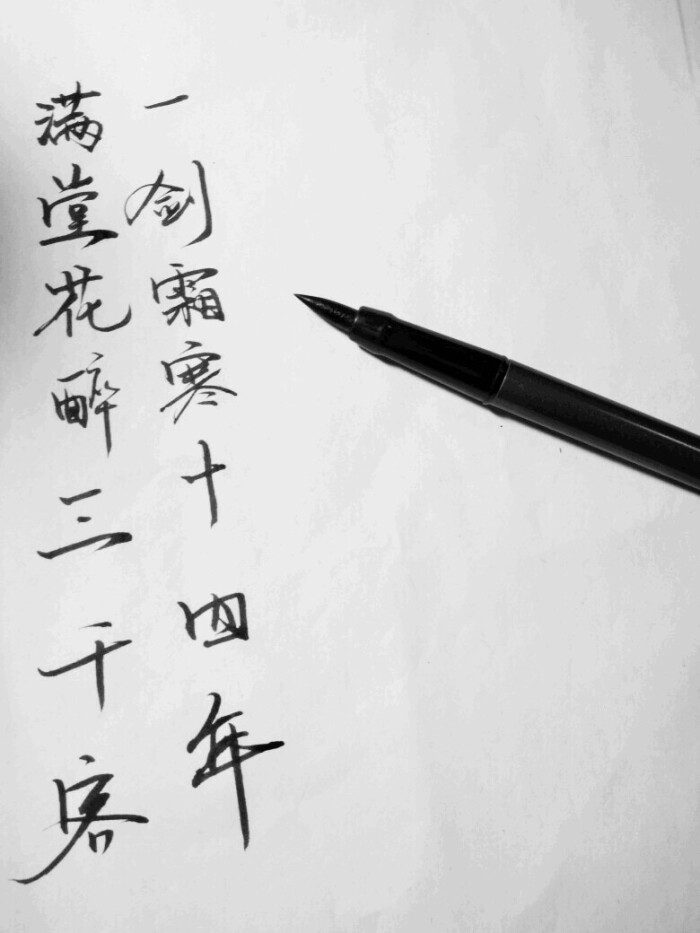 满堂花醉三千客
一剑霜寒十四年